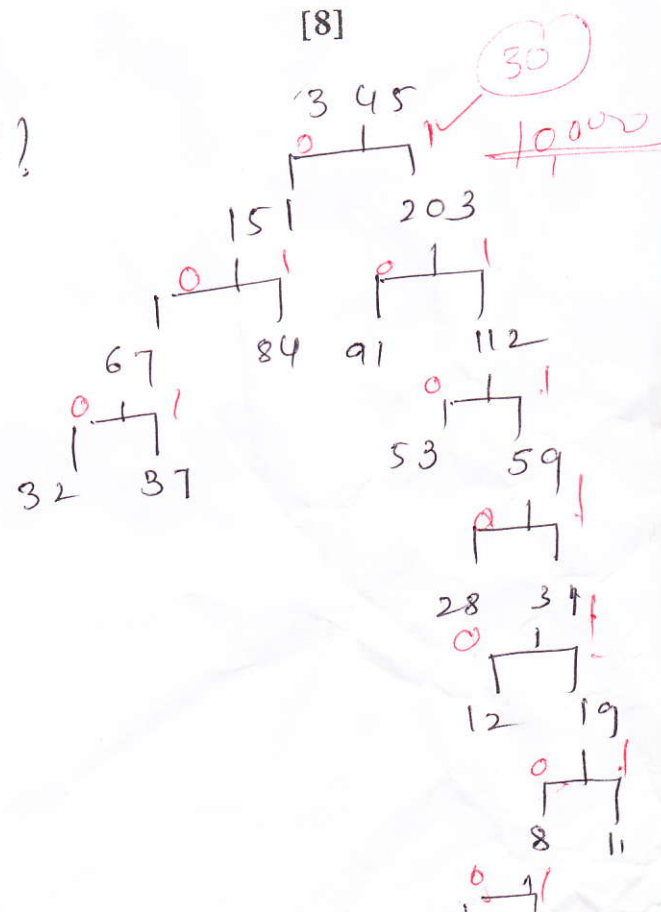 [8]
30
345
0 1
10000
?
151 203
0 1 0 1
67 84 91 112
0 1 0 1
32 37 53 59
0 1
28 31
0 1
12 19
0 1
8 11
0 1